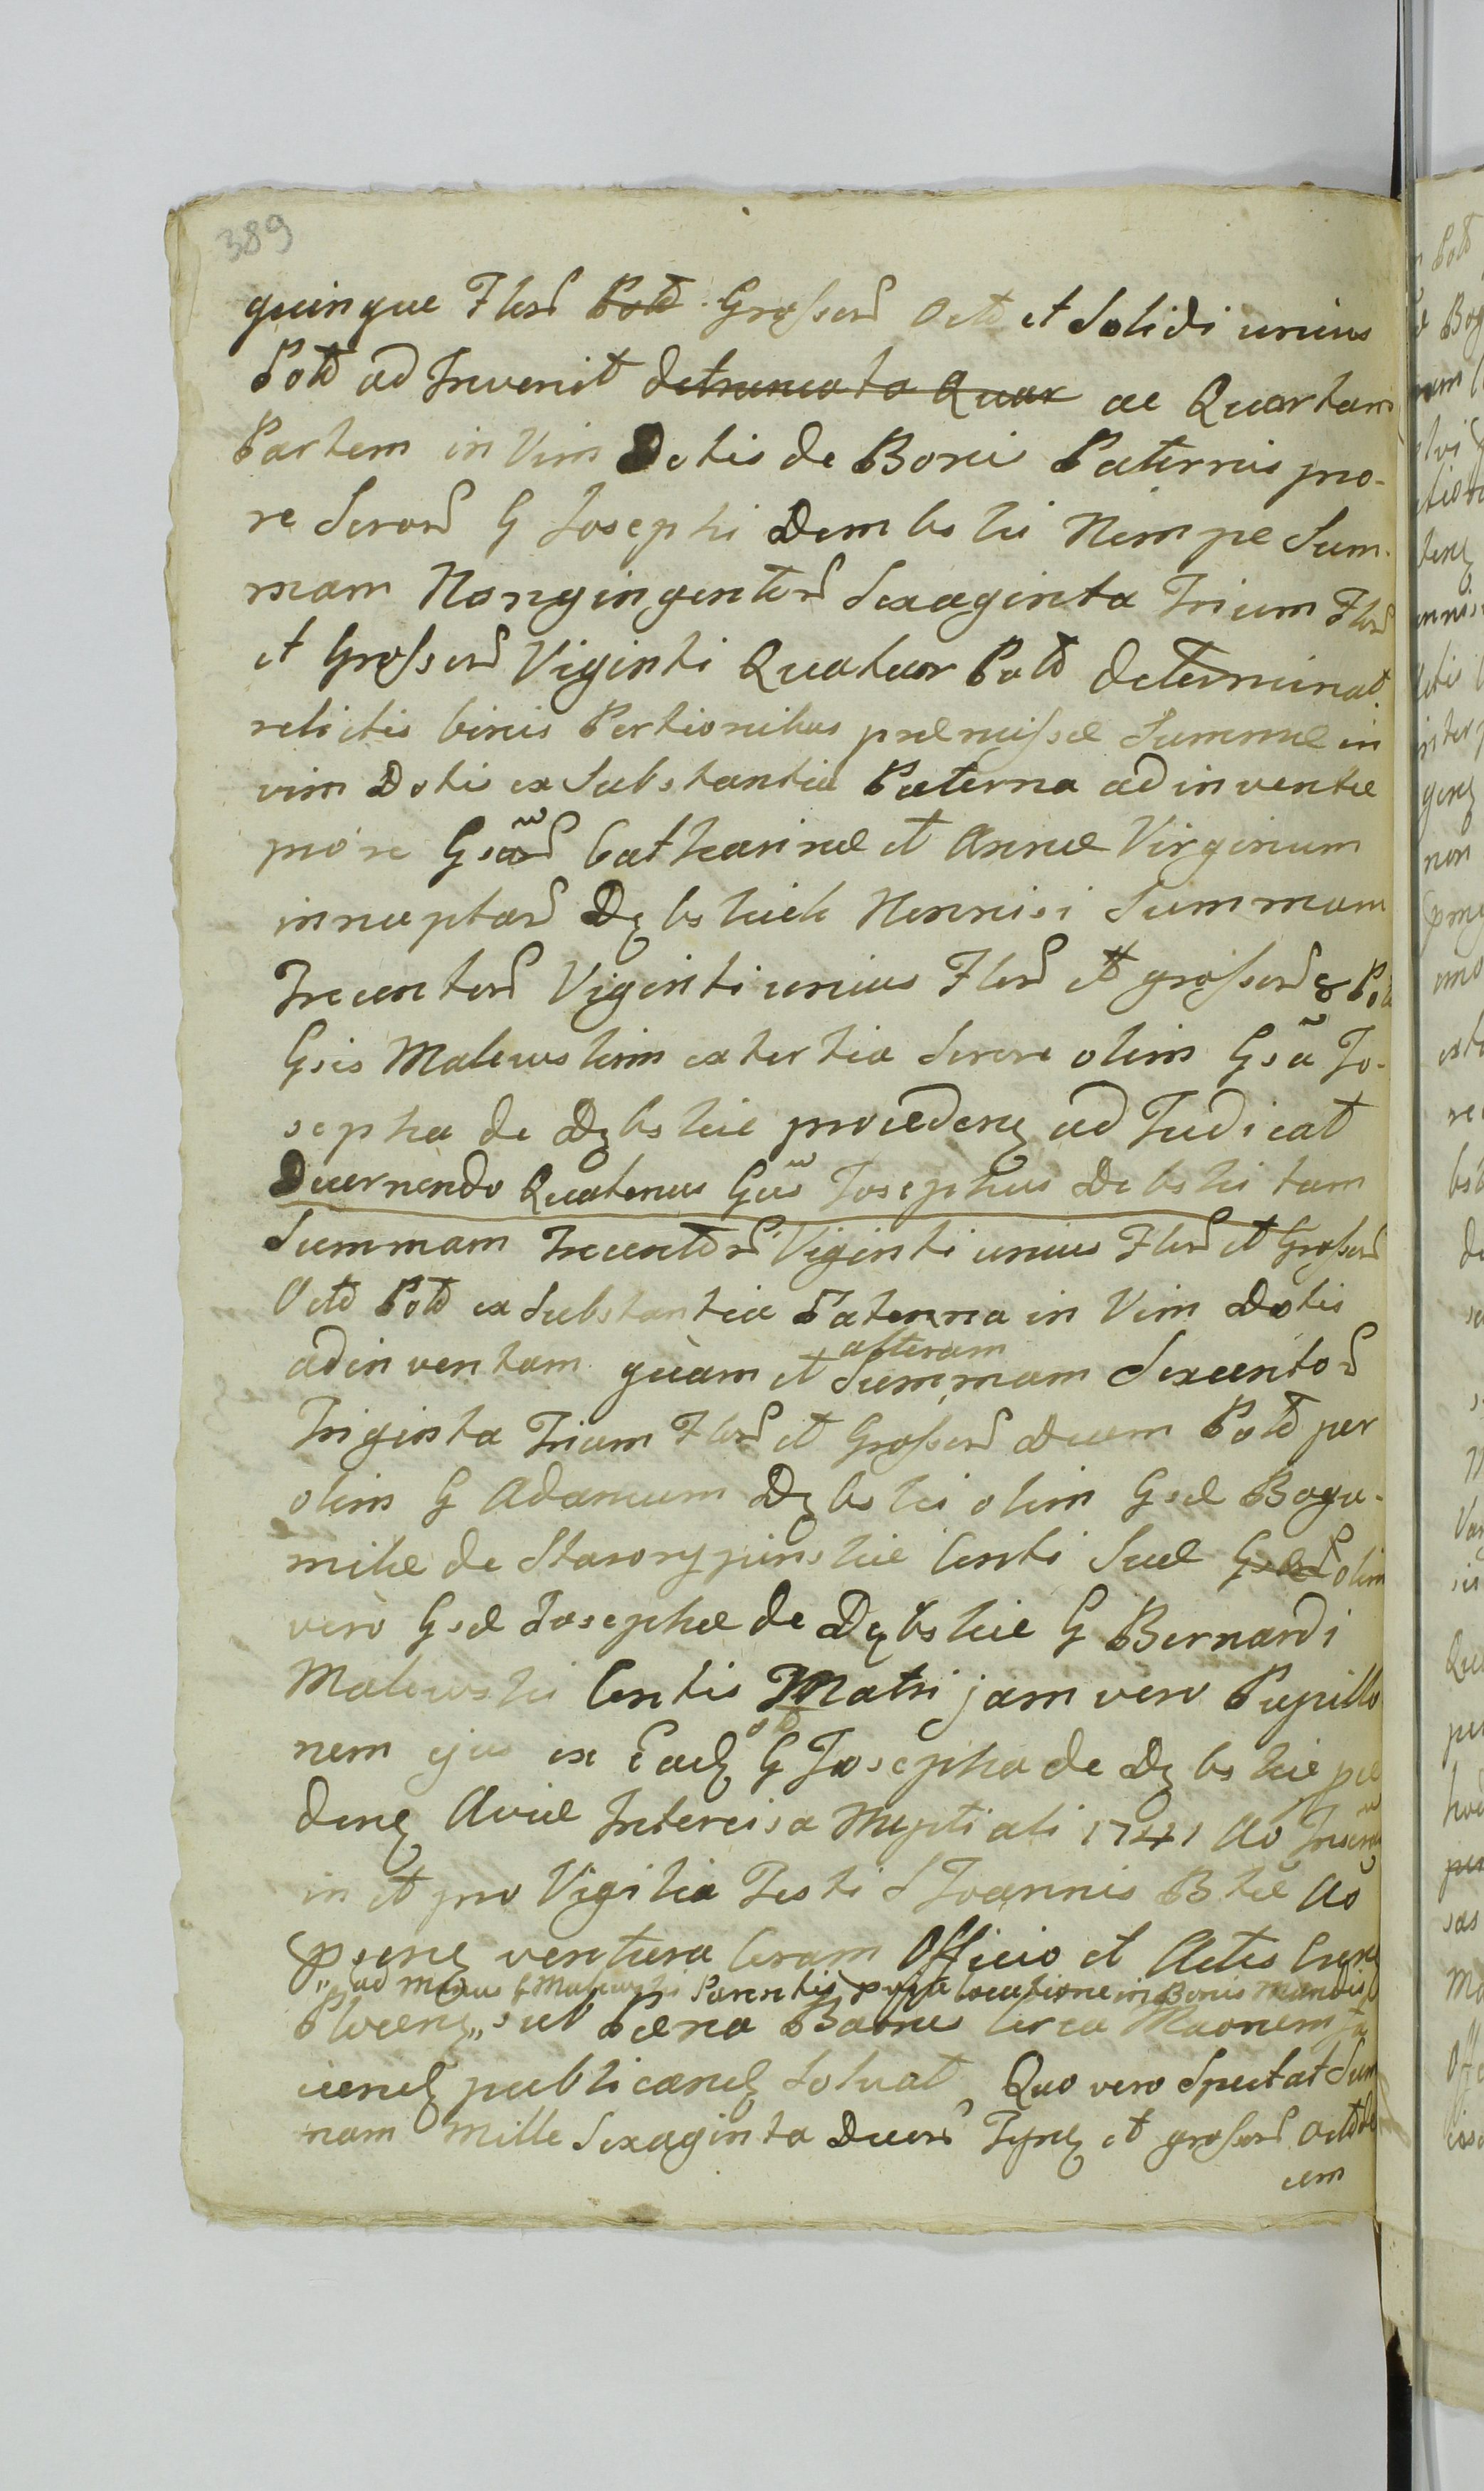 389
quinque Flor Pold Grosser Octo et Solidi unius
Pold ad Invenit detruncato Quar ac Quartam
Partem in Vim Dotis de Bonis Paternis pro-
re Soror G Josephi Dembski Nempe Sum-
mam Nongingentor Sexaginta Trium Flor
et Grosser Viginti Quatuor Pold determinat
relictis binis Portionibus praemissae Summae in
vim Dotis ex Substantia Paterna adinventae
pro re Gsar Catharinae et Annae Virginum
innuptar Dębskich Nonnisi Summam
Trecentor Viginti unius Flor et grosser 8 Pol
Gsis Malewskim ex tertia Sorore olim Gsa Jo-
sepha de Dębskie proceden ad Judicat
Decernendo Quatenus Gus Josephus Debski tam
Summam Trecentor Viginti unius Flor et Grosser
Octo Pold ex Substantia Paterna in Vim Dotis
adinventam quam et alteram Summam Sexcentor
Triginta Trium Flor et Grosser Duum Pold per
olim G Adamum Dębski olim Gsae Bogu-
milae de Starorypinskie Conti Suae Gsae olim
vero Gsae Josephae de Dębskie G Bernardi
Malewski Contis Matri jam vero Pupillo
nem ejus ex Ead G Josepha de Dębskie
den Aviae Intercisa Nuptiali 1741 Ao
in et pro Vigilia Festi S Joannis Btae Ao
psen ventura Coram Officio et Actis
ad Manus G Malewski Parentis locatione in Bonis
Plocen sub Paena Baonis Circa Maonem
cien publican Solvat Quo vero Spectat Sum
mam Mille Sexaginta Duor Tyn et grosser Octode
cem